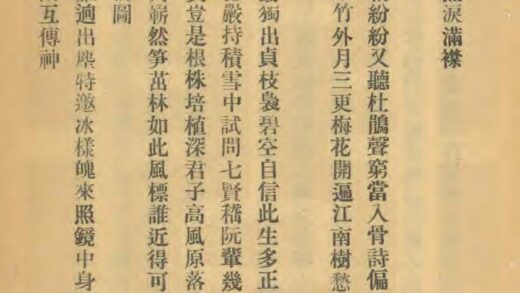 淚滿襟
紛紛又聽杜鵑聲窮當入骨詩偏
竹外月三更梅花開遍江南樹愁
獨出貞枝裊碧空自信此生多正
嚴持積雪中試問七賢嵇阮輩幾
豈是根株培植深君子高風原落
嶄然笋茁林如此風標誰近得可
圖
適出塵特邀冰樣魄來照鏡中身
互傳神